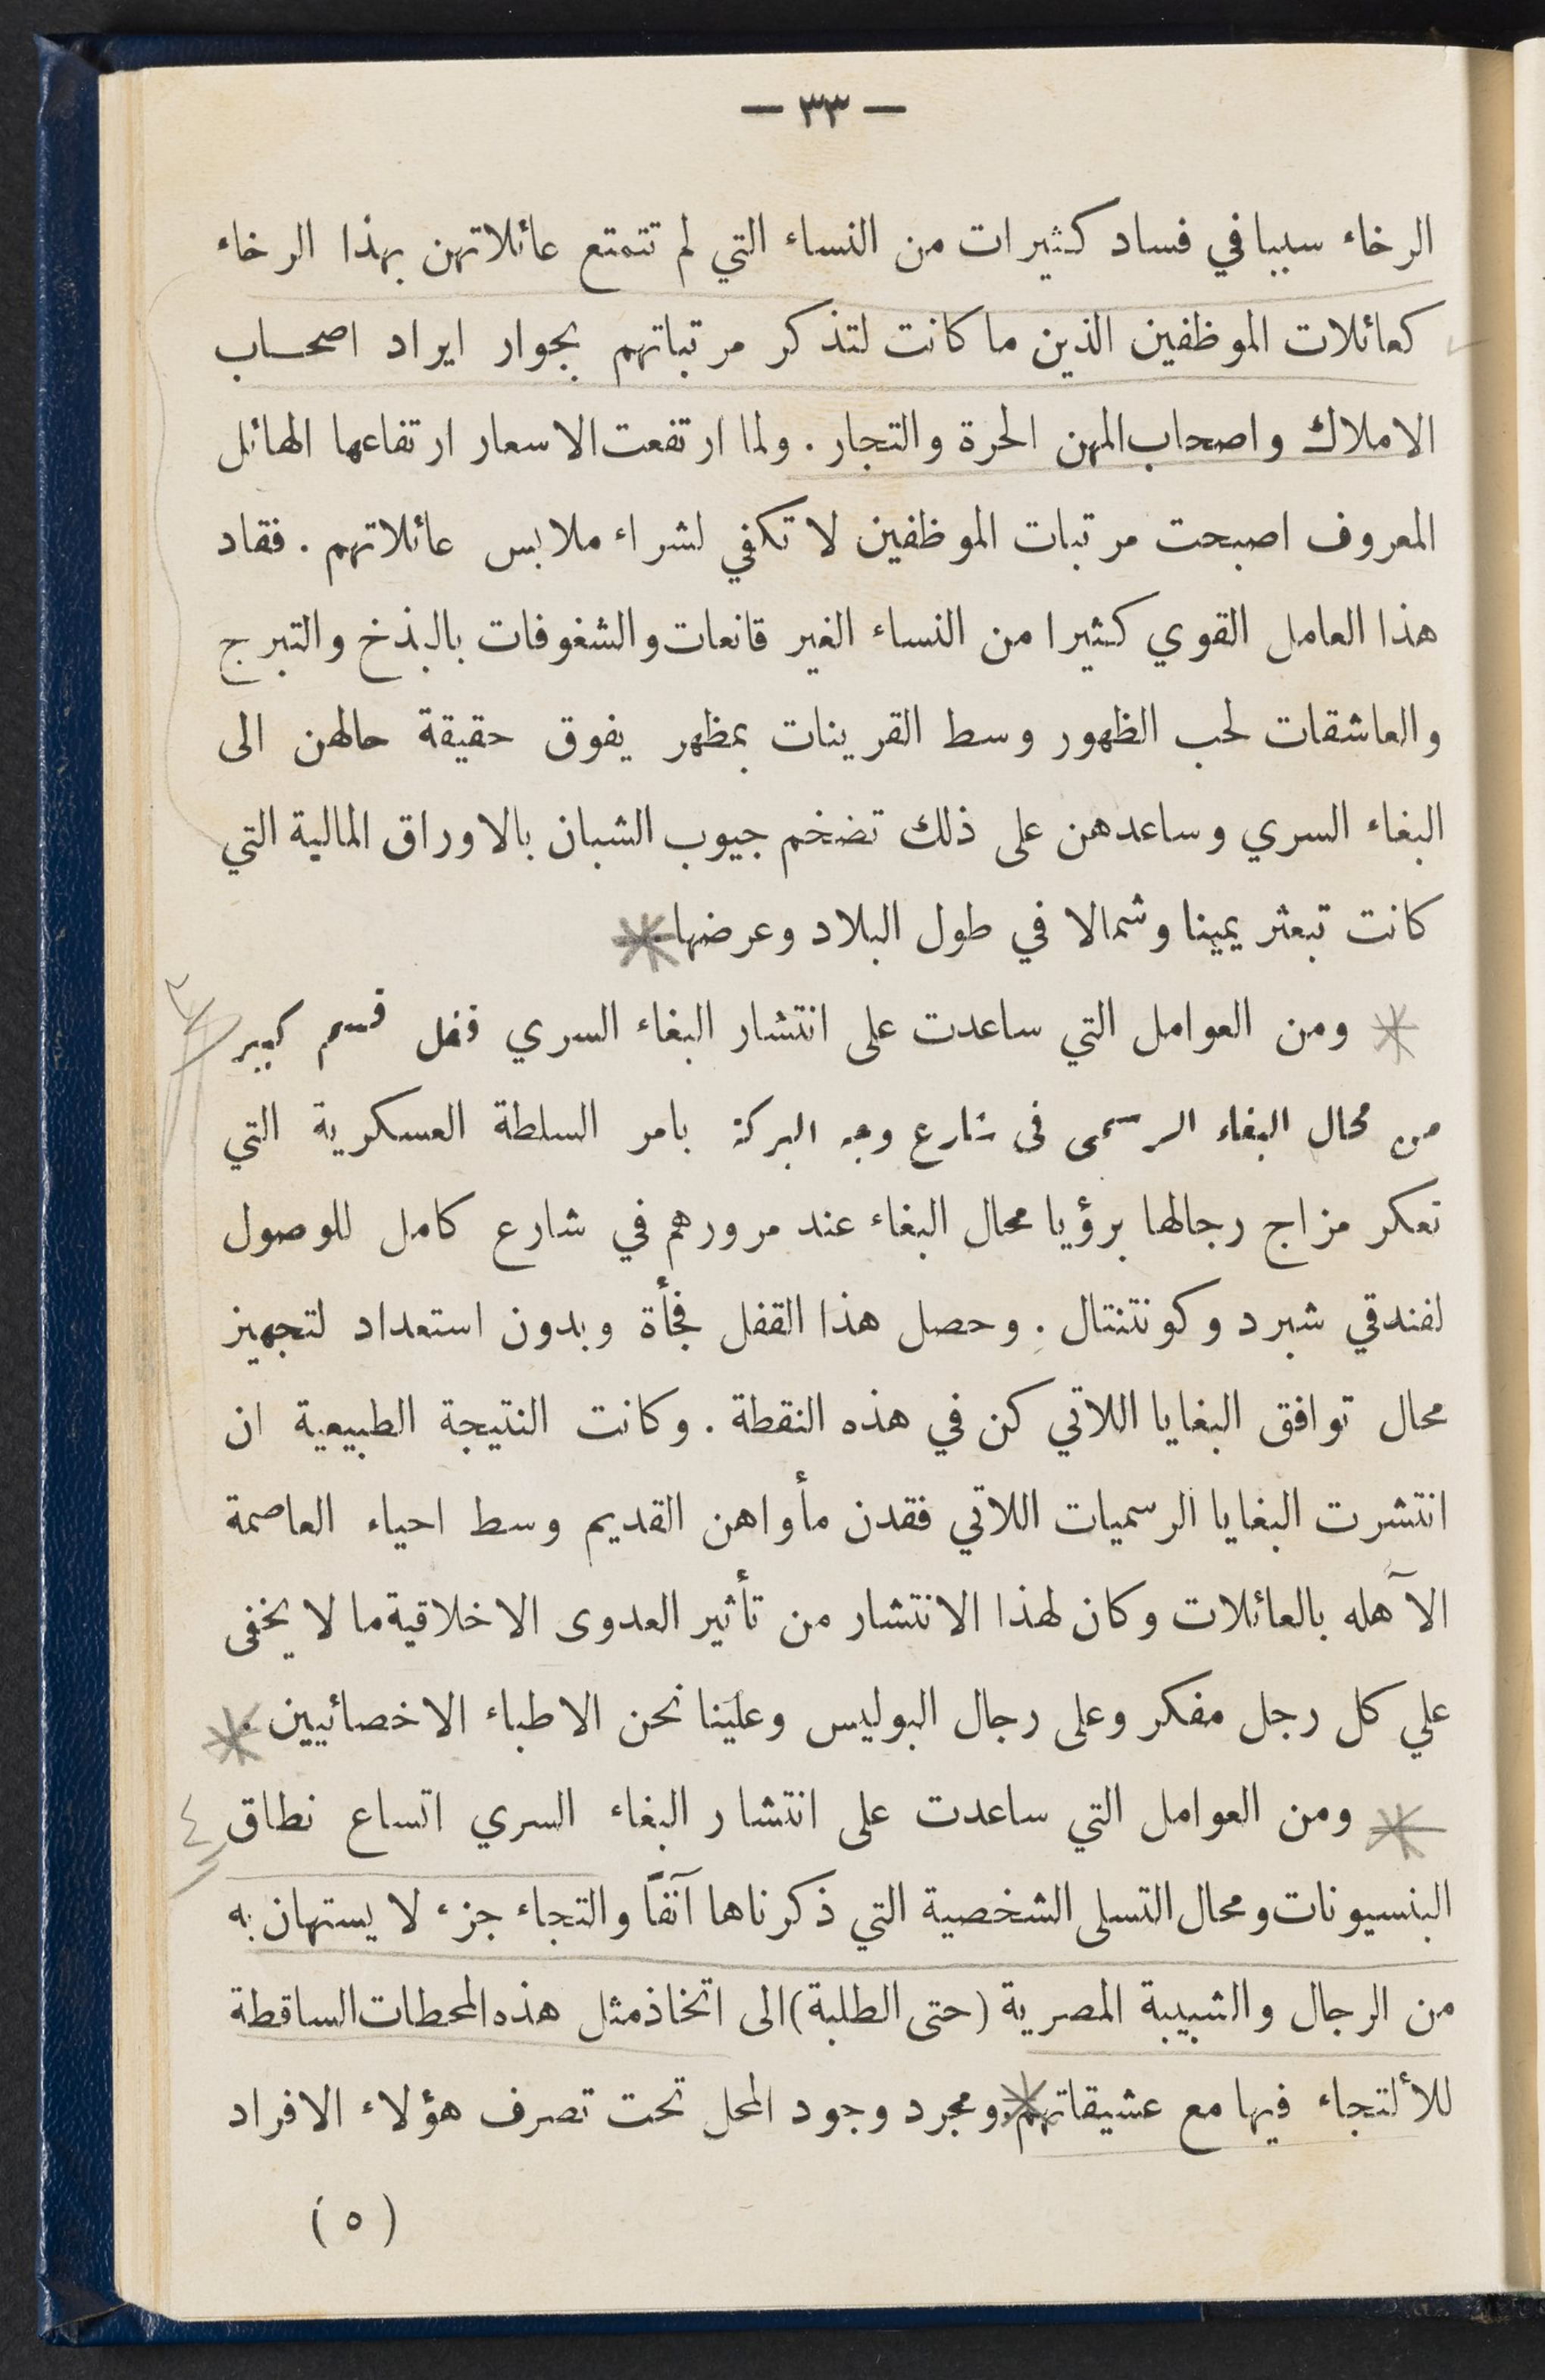 — ٣٣ —
الرخاء سببا في فساد كثيرات من النساء التي لم تتمتع عائلاتهن بهذا الرخاء
كعائلات الموظفين الذين ما كانت لتذكر مرتباتهم بجوار ايراد اصحاب
الاملاك واصحاب المهن الحرة والتجار . ولما ارتفعت الاسعار ارتفاعها الهائل
المعروف اصبحت مرتبات الموظفين لا تكفي لشراء ملابس عائلاتهم . فقاد
هذا العامل القوي كثيرا من النساء الغير قانعات والشغوفات بالبذخ والتبرج
والعاشقات لحب الظهور وسط القرينات بمظهر يفوق حقيقة حالهن الى
البغاء السري وساعدهن على ذلك تضخم جيوب الشبان بالاوراق المالية التي
كانت تبعثر يمينا وشمالا في طول البلاد وعرضها .
ومن العوامل التي ساعدت على انتشار البغاء السري قفل قسم كبير
من محال البغاء الرسمى فى شارع وجه البركة بامر السلطة العسكرية التي
تعكر مزاج رجالها برؤيا محال البغاء عند مرورهم في شارع كامل للوصول
لفندقي شبرد وكونتنتال . وحصل هذا القفل فجأة وبدون استعداد لتجهيز
محال توافق البغايا اللاتي كن في هذه النقطة . وكانت النتيجة الطبيعية ان
انتشرت البغايا الرسميات اللاتي فقدن مأواهن القديم وسط احياء العاصمة
الآهله بالعائلات وكان لهذا الانتشار من تأثير العدوى الاخلاقية ما لا يخفى
علي كل رجل مفكر وعلى رجال البوليس وعلينا نحن الاطباء الاخصائيين .
ومن العوامل التي ساعدت على انتشار البغاء السري اتساع نطاق
٤
البنسيونات ومحال التسلى الشخصية التي ذكرناها آنفاً والتجاء جزء لا يستهان به
من الرجال والشبيبة المصرية (حتى الطلبة) الى اتخاذ مثل هذه المحطات الساقطة
للألتجاء فيها مع عشيقاتهم . ومجرد وجود المحل تحت تصرف هؤلاء الافراد
(٥)